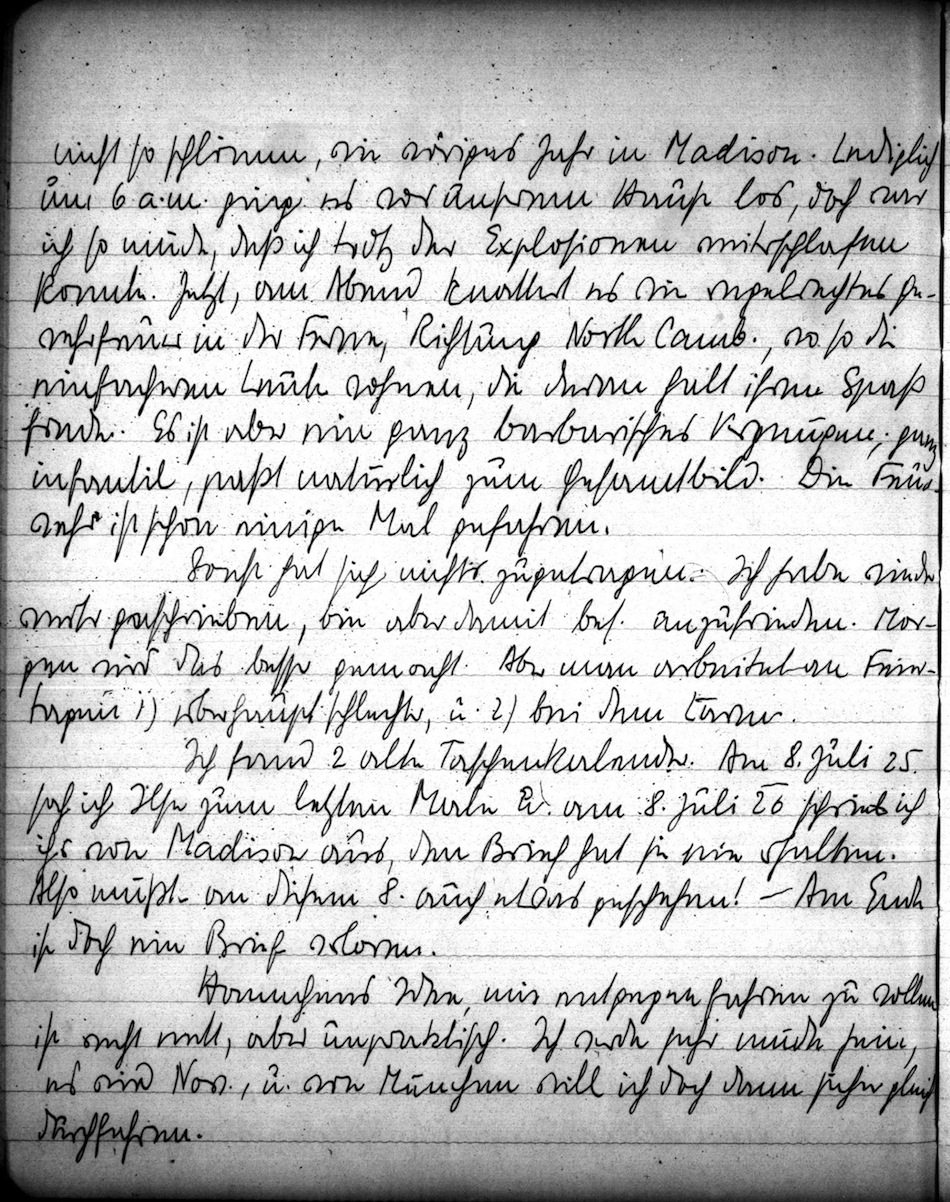 nicht so schlimm, wie voriges Jahr in Madison. Lediglich
um 6 a.m. ging es vor unserem Hause los, doch war
ich so müde, daß ich trotz der Explosionen weiterschlafen
konnte. Jetzt, am Abend knattert es wie regelrechtes Ge-
wehrfeuer in der Ferne, Richtung North Camb., wo so die
einfacheren Leute wohnen, die daran halt ihren Spaß
finden. Es ist aber ein ganz barbarisches Vergnügen, ganz
infantil, paßt natürlich zum Gesamtbild. Die Feuer-
wehr ist schon einige Mal gefahren.
Sonst hat sich nichts zugetragen. Ich habe wieder
mehr geschrieben, bin aber damit bes. unzufrieden. Mor-
gen wird das besser gemacht. Aber man arbeitet an Feier-
tagen 1) überhaupt schlechter, u. 2) bei dem Lärm.
Ich fand 2 alte Taschenkalender. Am 8. Juli 25.
sah ich Ilse zum letzten Male u. am 8. Juli 26 schrieb ich
ihr von Madison aus, den Brief hat sie nie erhalten.
Also mußte an diesem 8. auch etwas geschehen! – Am Ende
ist doch ein Brief verloren.
Hannchens Idee, mir entgegenfahren zu wollen
ist recht nett, aber unpraktisch. Ich werde sehr müde sein,
es wird Nov., u. von München will ich doch dann sicher gleich
durchfahren.